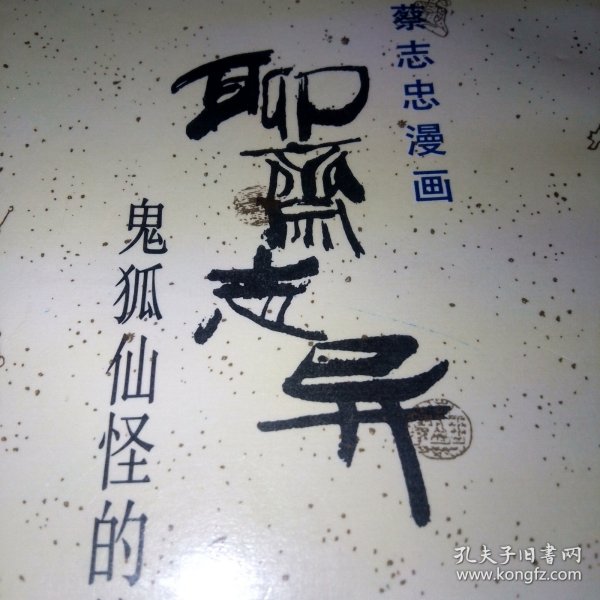 蔡志忠漫画
聊齋志异
鬼狐仙怪的
孔夫子旧书网
www.kongfz.com